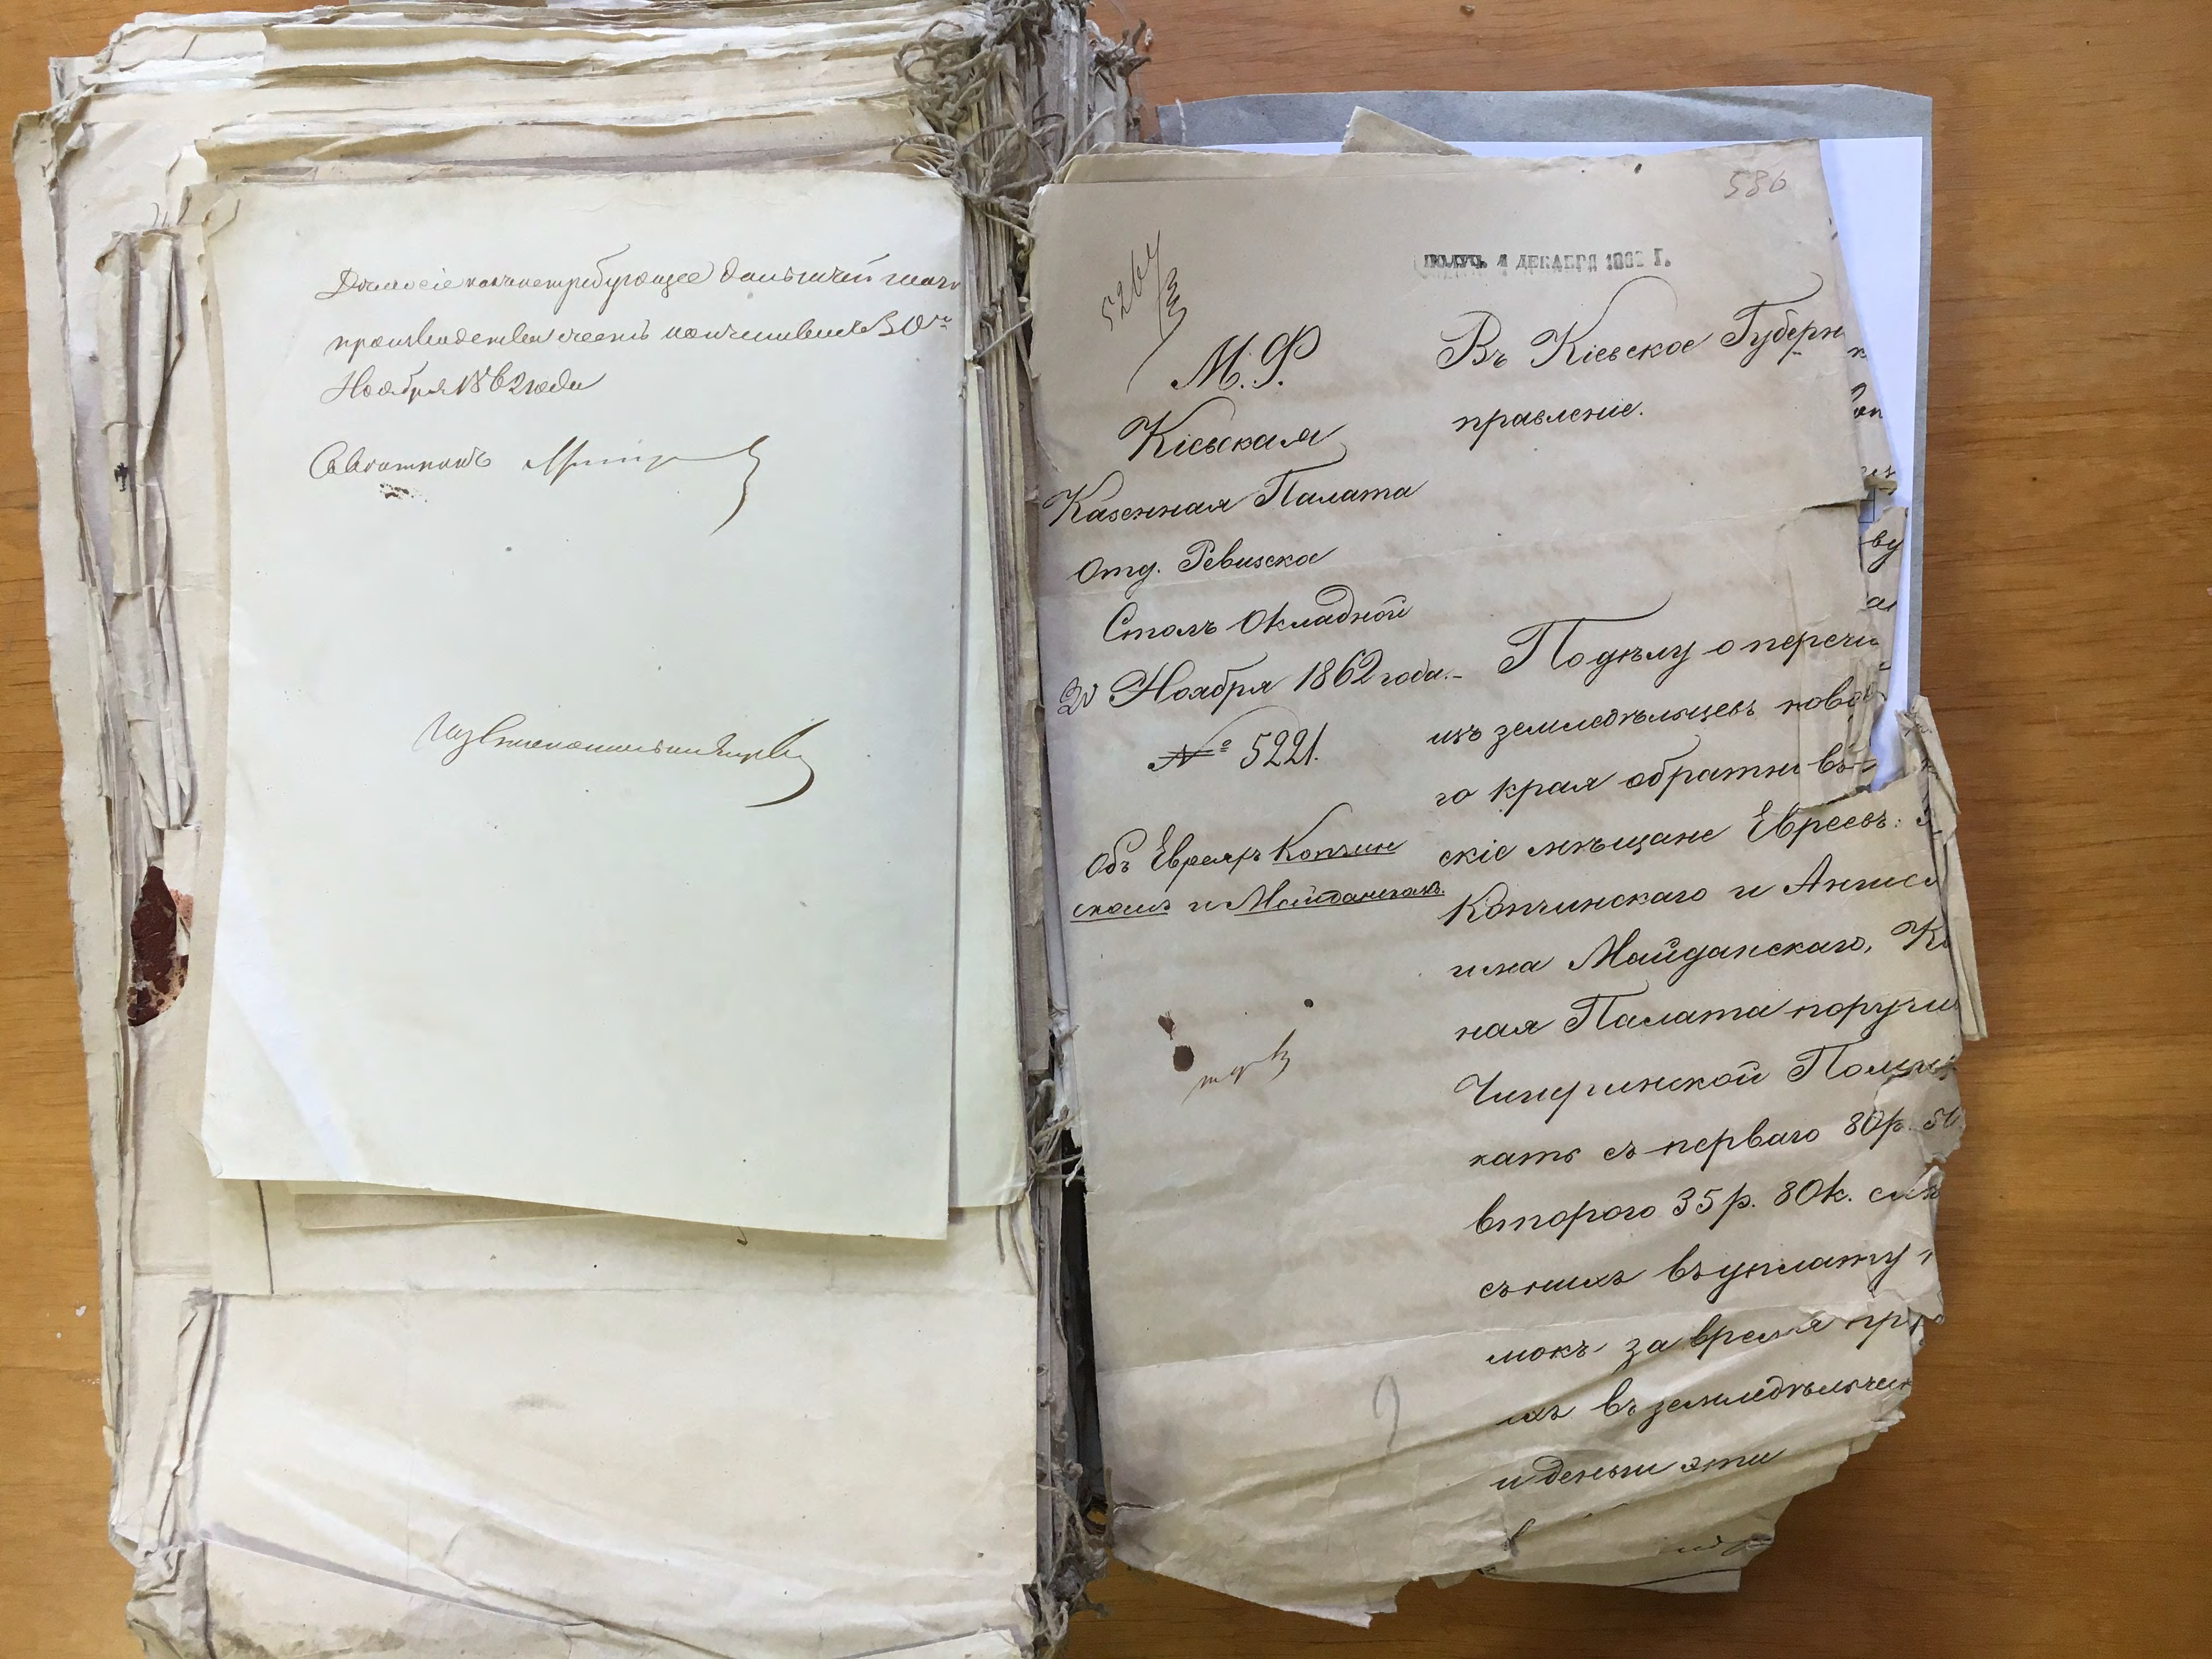 Дѣло сіе какъ нетребующее дальнѣйшаго
производствомъ счесть конченнымъ 30го
Ноября 1862 года
Совѣтникъ
586
5264
ПОЛУЧ. 4 ДЕКАБРЯ 1862 Г.
М. Ф.
Кіевская
Казенная Палата
Отд. Ревизско
Столъ Окладной
20 Ноября 1862 года.
№ 5221.
Объ Евреяхъ Копчин
скомъ и Майданскомъ.
Въ Кіевское Губерн
правленіе.
По дѣлу о перечи
изъ земледѣльцевъ ново
го края обратно въ
скіе мѣщане Евреевъ:
Копчинскаго и Ансиѣ
има Майданскаго, К
ная Палата поручи
Чигиринской Полиц
кать съ перваго 80 р. 50
втораго 35 р. 80 к. слѣ
съ нихъ въ уплату
мокъ за время пр
ихъ въ земледѣльчес
и деньги эти